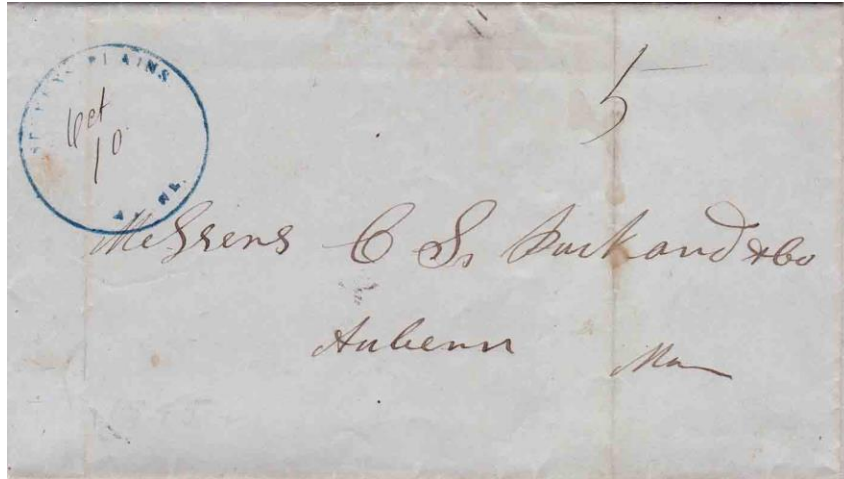 STEVENS PLAINS
Oct
10
5
Messers C S. Packard & Co
Auburn Me